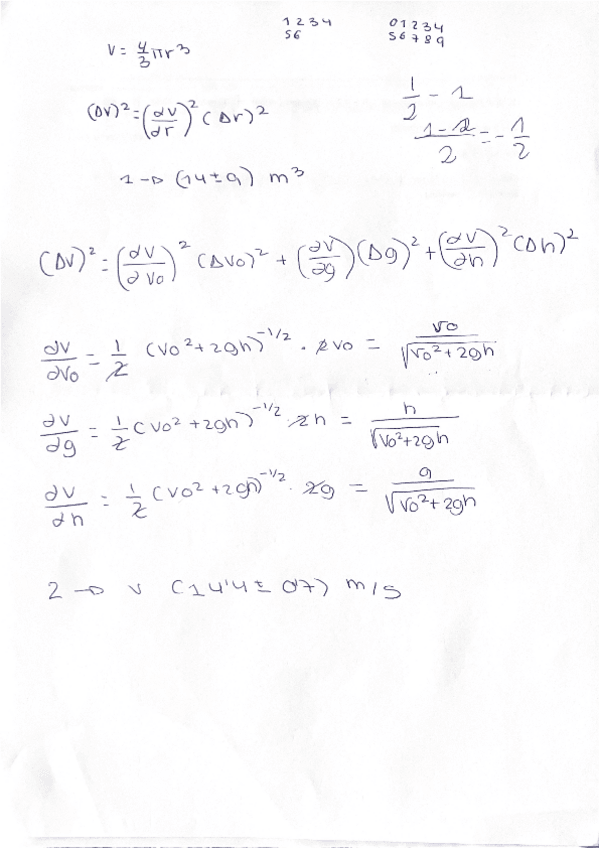 1 2 3 4
5 6
0 1 2 3 4
5 6 7 8 9
V = 4/3 πr³
(ΔV)² = (∂V/∂r)² (Δr)²
1/2 - 1
1-2/2 = - 1/2
1 → (14 ± 9) m³
(ΔV)² = (∂V/∂V₀)² (ΔV₀)² + (∂V/∂g)(Δg)² + (∂V/∂h)² (Δh)²
∂V/∂V₀ = 1/2 (V₀² + 2gh)^(-1/2) · 2V₀ = V₀/√(V₀² + 2gh)
∂V/∂g = 1/2 (V₀² + 2gh)^(-1/2) · 2h = h/√(V₀² + 2gh)
∂V/∂h = 1/2 (V₀² + 2gh)^(-1/2) · 2g = g/√(V₀² + 2gh)
2 → V (14'4 ± 0'7) m/s